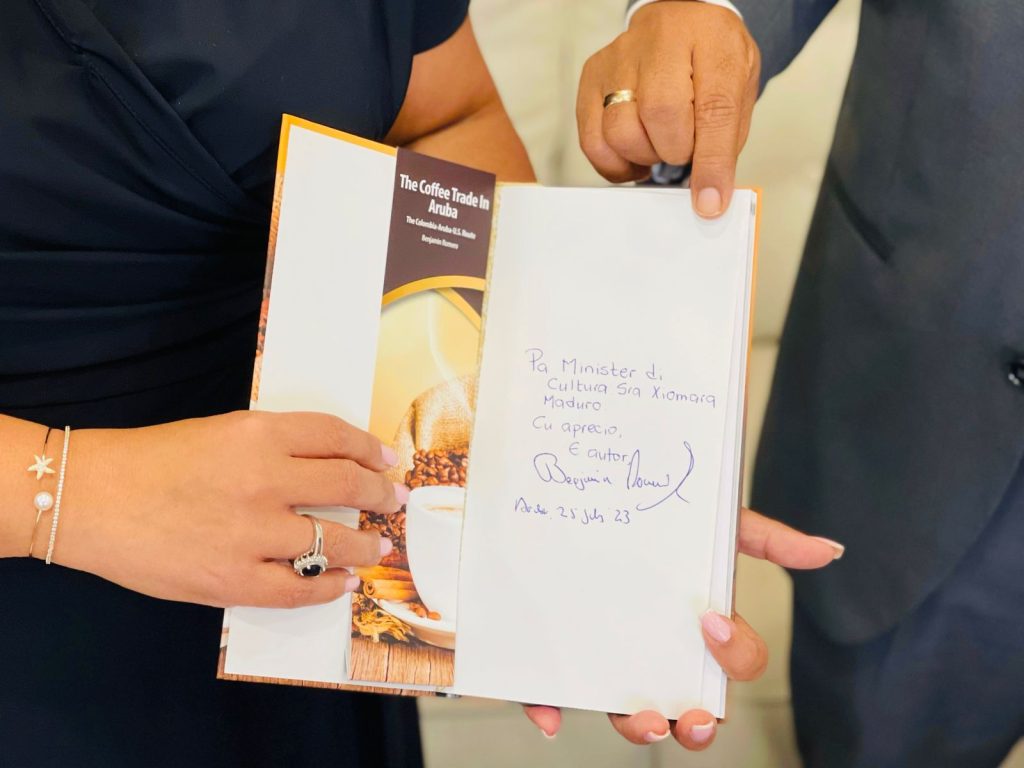 The Coffee Trade In
Aruba
The Colombia-Aruba-U.S. Route
Benjamin Romero
Pa Minister di
Cultura Sra Xiomara
Maduro
Cu aprecio,
E autor,
Benjamin Romero
Aruba, 25 july 23